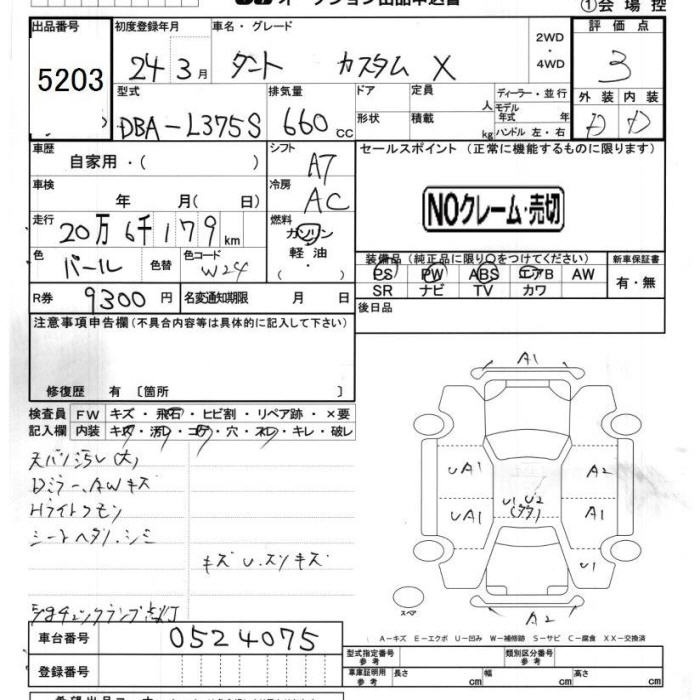 オークション出品申込書
①会場控
出品番号 5203
初度登録年月 24年 3月
車名・グレード タント カスタム X
2WD・4WD
評価点 3
型式 DBA-L375S
排気量 660 cc
ドア
形状
定員 人
積載 kg
ディーラー・並行
モデル年式 年
ハンドル 左・右
外装 D
内装 D
車歴 自家用・( )
シフト AT
セールスポイント (正常に機能するものに限ります)
車検 年 月( 日)
冷房 AC
NOクレーム・売切
走行 20万6千179km
燃料 ガソリン 軽油 ( ・ )
色 パール 色替
色コード W24
装備品 (純正品に限り○をつけてください)
PS PW ABS エアB AW
SR ナビ TV カワ
新車保証書 有・無
R券 9300円
名変通知期限 月 日
後日品
注意事項申告欄 (不具合内容等は具体的に記入して下さい)
修復歴 有 〔箇所 〕
検査員記入欄
FW キズ・飛石・ヒビ割・リペア跡・×要
内装 キズ・汚レ・コゲ・穴・スレ・キレ・破レ
天バリ汚レ(大)
Dミラー、AWキズ
Hライトクモリ
シートヘタリ.シミ
キズU.スリキズ
チェックランプ点灯
A1
UA1
A2
U1 U2
UA1
A1
U1
A2
スペア
A-キズ E-エクボ U-凹み W-補修跡 S-サビ C-腐食 XX-交換済
車台番号 0524075
登録番号
型式指定番号 参考
類別区分番号 参考
車庫証明用 参考 長さ cm 幅 cm 高さ cm